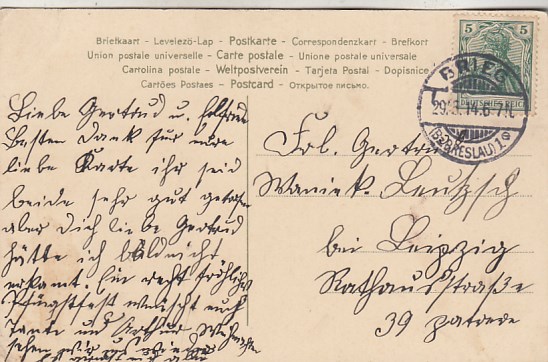 Briefkaart - Levelező-Lap - Postkarte - Correspondenzkart - Brefkort
Union postale universelle - Carte postale - Unione postale universale
Cartolina postale - Weltpostverein - Tarjeta Postal - Dopisnice
Cartões Postaes - Postcard - Открытое письмо.
5 5
DEUTSCHES REICH
BRIEG
29.5.14.6-7N.
(BZ. BRESLAU) 1
Liebe Gertrud u.
besten Dank für eure
liebe Karte ihr seid
beide sehr gut
aber Dich liebe Gertrud
hätte ich bald nicht
erkannt. Ein recht fröhliches
Pfingstfest wünscht euch
Tante und Arthur
sehen wir uns
Frl. Gertrud
Waniek. Leutzsch
bei Leipzig
Rathausstraße
39